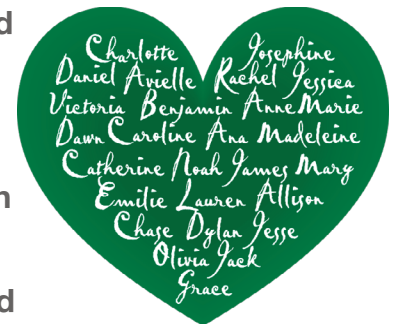 d
Charlotte Josephine
Daniel Avielle Rachel Jessica
Victoria Benjamin AnneMarie
Dawn Caroline Ana Madeleine
Catherine Noah James Mary
n
Emilie Lauren Allison
Chase Dylan Jesse
Olivia Jack
Grace
d